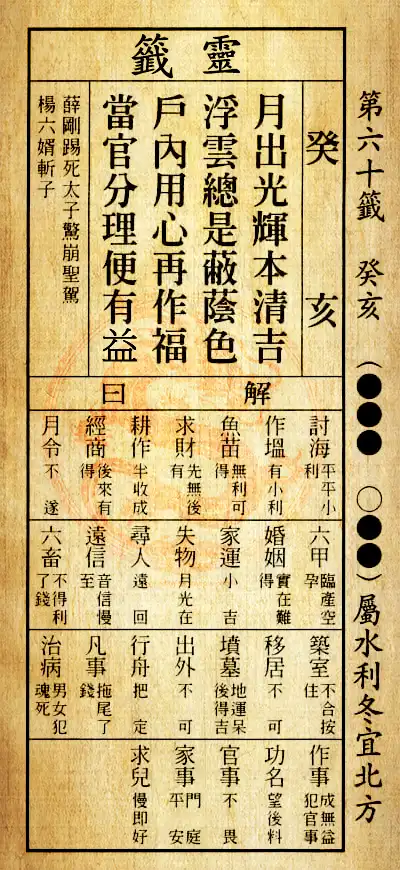 第六十籤 癸亥 (●●● ○●●) 屬水利冬宜北方
靈籤
癸亥
月出光輝本清吉
浮雲總是蔽蔭色
戶內用心再作福
當官分理便有益
薛剛踢死太子驚崩聖駕
楊六婿斬子
解曰
討海 平平小利
作塭 有小利
魚苗 無利可得
求財 先無後有
耕作 半收成
經商 後來有得
月令 不遂
六甲 臨產空孕
婚姻 實在難得
家運 小吉
失物 月光在
尋人 遠回
遠信 音信慢至
六畜 不得利了錢
築室 不合按住
移居 不可
墳墓 地運呆後得吉
出外 不可
行舟 把定
凡事 拖尾了錢
治病 男女犯魂死
作事 成無益犯官事
功名 望後料
官事 不畏
家事 門庭平安
求兒 慢即好